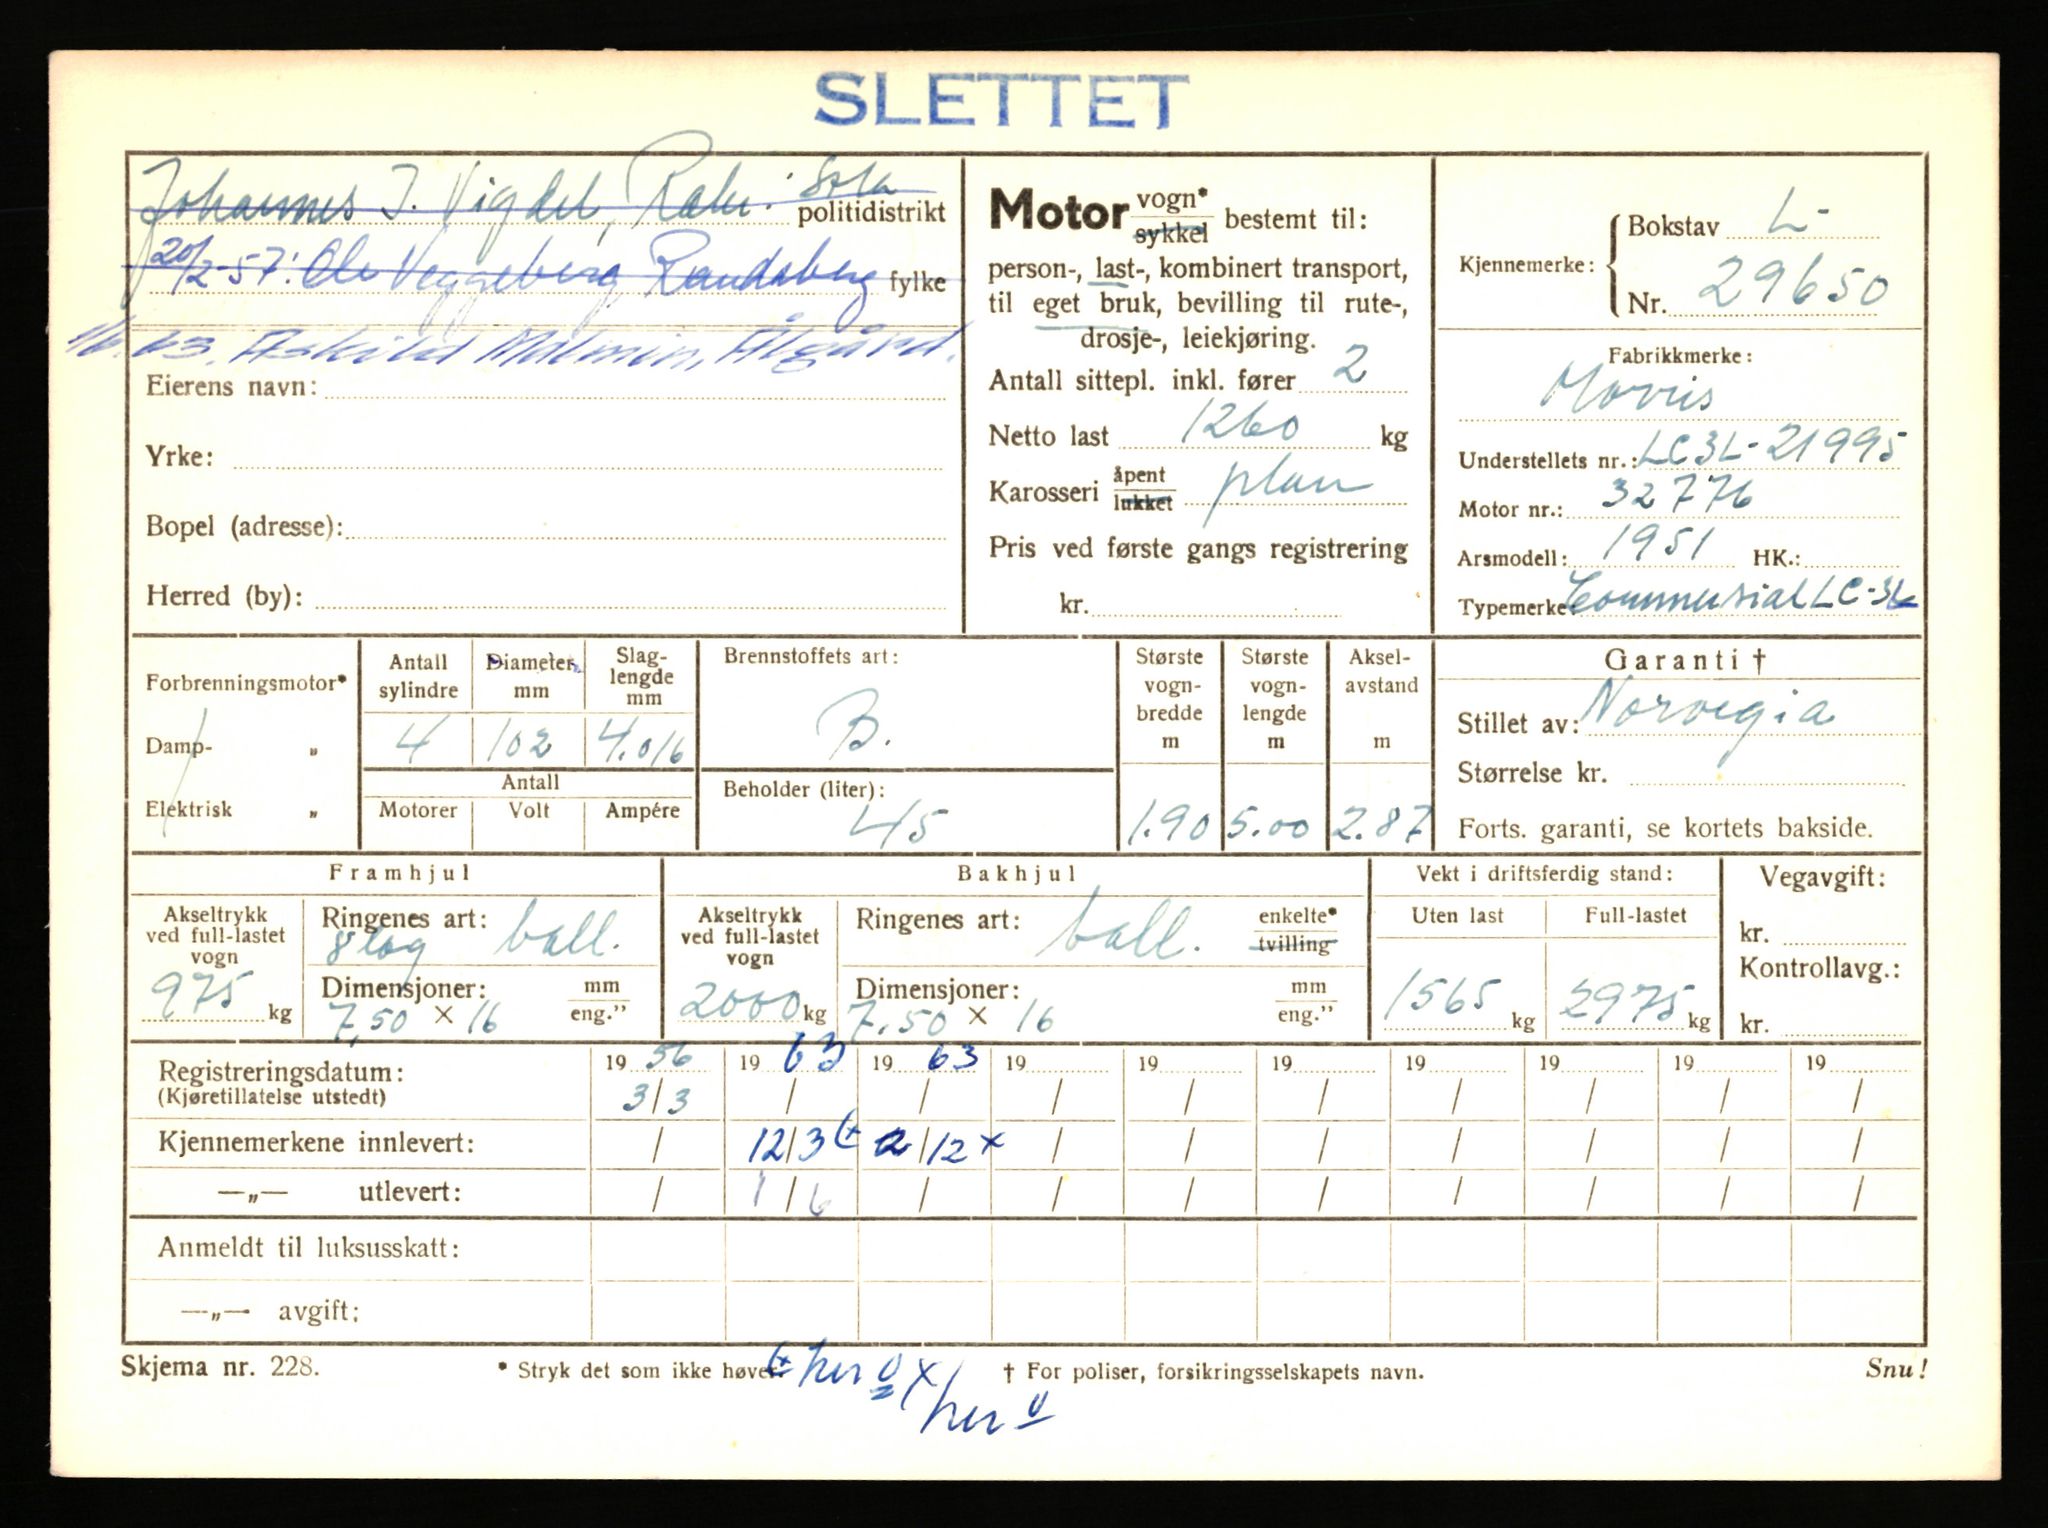 SLETTET
Johannes J. Vigdel, Sola
politidistrikt
20/2-57: Ole Veggeberg Randaberg fylke
63. Askild Malmin, Ålgård.
Eierens navn:
Yrke:
Bopel (adresse):
Herred (by):
Motor vogn* sykkel bestemt til:
person-, last-, kombinert transport,
til eget bruk, bevilling til rute-,
drosje-, leiekjøring.
Antall sittepl. inkl. fører 2
Netto last 1260 kg
Karosseri åpent lukket plan
Pris ved første gangs registrering
kr.
Kjennemerke: Bokstav L-
Nr. 29650
Fabrikkmerke:
Morris
Understellets nr.: LC3L-21995
Motor nr.: 32776
Arsmodell: 1951 HK.:
Typemerke: Commersial LC-3L
Forbrenningsmotor*
Damp- „
Elektrisk „
Antall sylindre Diameter mm Slag-lengde mm
4 102 4.016
Antall
Motorer Volt Ampére
Brennstoffets art:
B.
Beholder (liter):
45
Største vogn-bredde m Største vogn-lengde m Aksel-avstand m
1.90 5.00 2.87
Garanti †
Stillet av: Norvegia
Størrelse kr.
Forts. garanti, se kortets bakside.
Framhjul
Akseltrykk ved full-lastet vogn
975 kg
Ringenes art: 8 lag ball.
Dimensjoner: mm eng."
7,50 × 16
Bakhjul
Akseltrykk ved full-lastet vogn
2000 kg
Ringenes art: ball. enkelte* tvilling
Dimensjoner: mm eng."
7.50 × 16
Vekt i driftsferdig stand:
Uten last Full-lastet
1565 kg 2975 kg
Vegavgift:
kr.
Kontrollavg.:
kr.
Registreringsdatum: 19 56 19 63 19 63 19 19 19 19 19 19 19
(Kjøretillatelse utstedt) 3/3 / / / / / / / / /
Kjennemerkene innlevert: / 12/3 (+ 2/12 x / / / / / / /
—„— utlevert: / 1/6 / / / / / / / /
Anmeldt til luksusskatt:
—„— avgift:
Skjema nr. 228. * Stryk det som ikke høver. † For poliser, forsikringsselskapets navn. Snu!